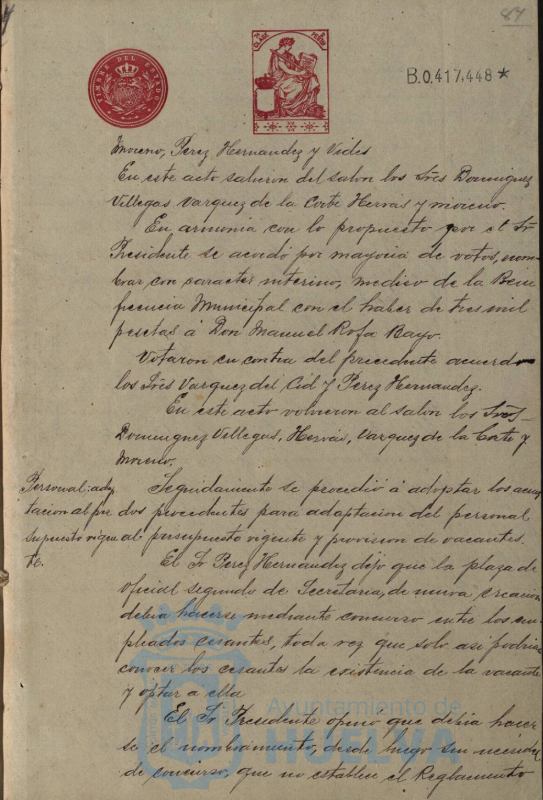 87
TIMBRE DEL ESTADO
CLASE
B.0.417,448 *
Moreno, Perez Hernandez y Vides
En este acto salieron del salon los Sres Dominguez
Villegas Vazquez de la Corte Hervas y Moreno.
En armonia con lo propuesto por el Sr
Presidente se acordó por mayoria de votos, nom-
brar con caracter interino, medico de la Bene
ficencia Municipal con el haber de tres mil
pesetas á Don Manuel Rofa Bayo.
Votaron en contra del precedente acuerdo
los Sres Vazquez del Cid y Perez Hernandez.
En este acto volvieron al salon los Sres
Dominguez Villegas, Hervás, Vazquez de la Corte y
Moreno.
Personal: adap
tacion al pre
supuesto vigen
te.
Seguidamente se procedió á adoptar los acuer
dos procedentes para adaptacion del personal
al presupuesto vigente y provision de vacantes.
El Sr Perez Hernandez dijo que la plaza de
oficial segundo de Secretaria, de nueva creacion
debia hacerse mediante concurso entre los em
pleados cesantes, toda vez que solo asi podrian
conocer los cesantes la existencia de la vacante
y optar a ella
El Sr Presidente opino que debia hacer
se el nombramiento, desde luego sin necesidad
de concurso, que no establece el Reglamento
Ayuntamiento de
HUELVA